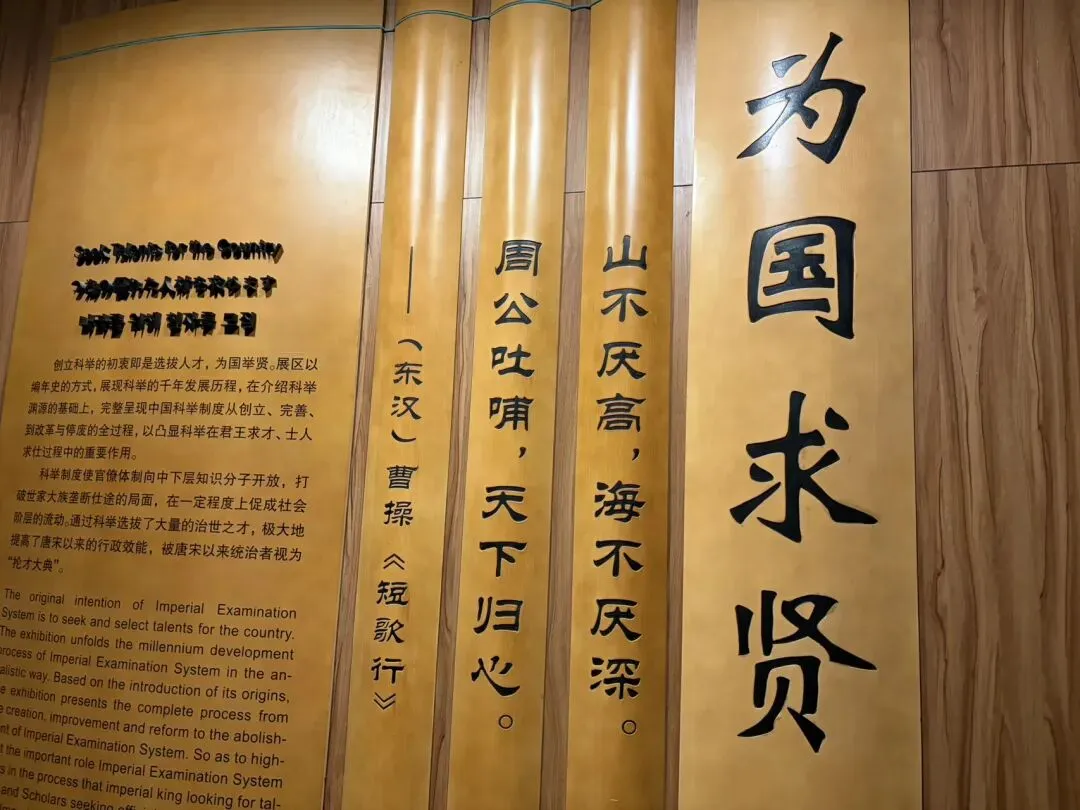 为国求贤
山不厌高，海不厌深。
周公吐哺，天下归心。
——（东汉）曹操《短歌行》
Seek Talents for the Country
创立科举的初衷即是选拔人才，为国举贤。展区以
编年史的方式，展现科举的千年发展历程，在介绍科举
渊源的基础上，完整呈现中国科举制度从创立、完善、
到改革与停废的全过程，以凸显科举在君王求才、士人
求仕过程中的重要作用。
科举制度使官僚体制向中下层知识分子开放，打
破世家大族垄断仕途的局面，在一定程度上促成社会
阶层的流动。通过科举选拔了大量的治世之才，极大地
提高了唐宋以来的行政效能，被唐宋以来统治者视为
“抡才大典”。
The original intention of Imperial Examination
System is to seek and select talents for the country.
The exhibition unfolds the millennium development
process of Imperial Examination System in the an-
alistic way. Based on the introduction of its origins,
exhibition presents the complete process from
creation, improvement and reform to the abolish-
of Imperial Examination System. So as to high-
the important role Imperial Examination System
in the process that imperial king looking for tal-
and Scholars seeking